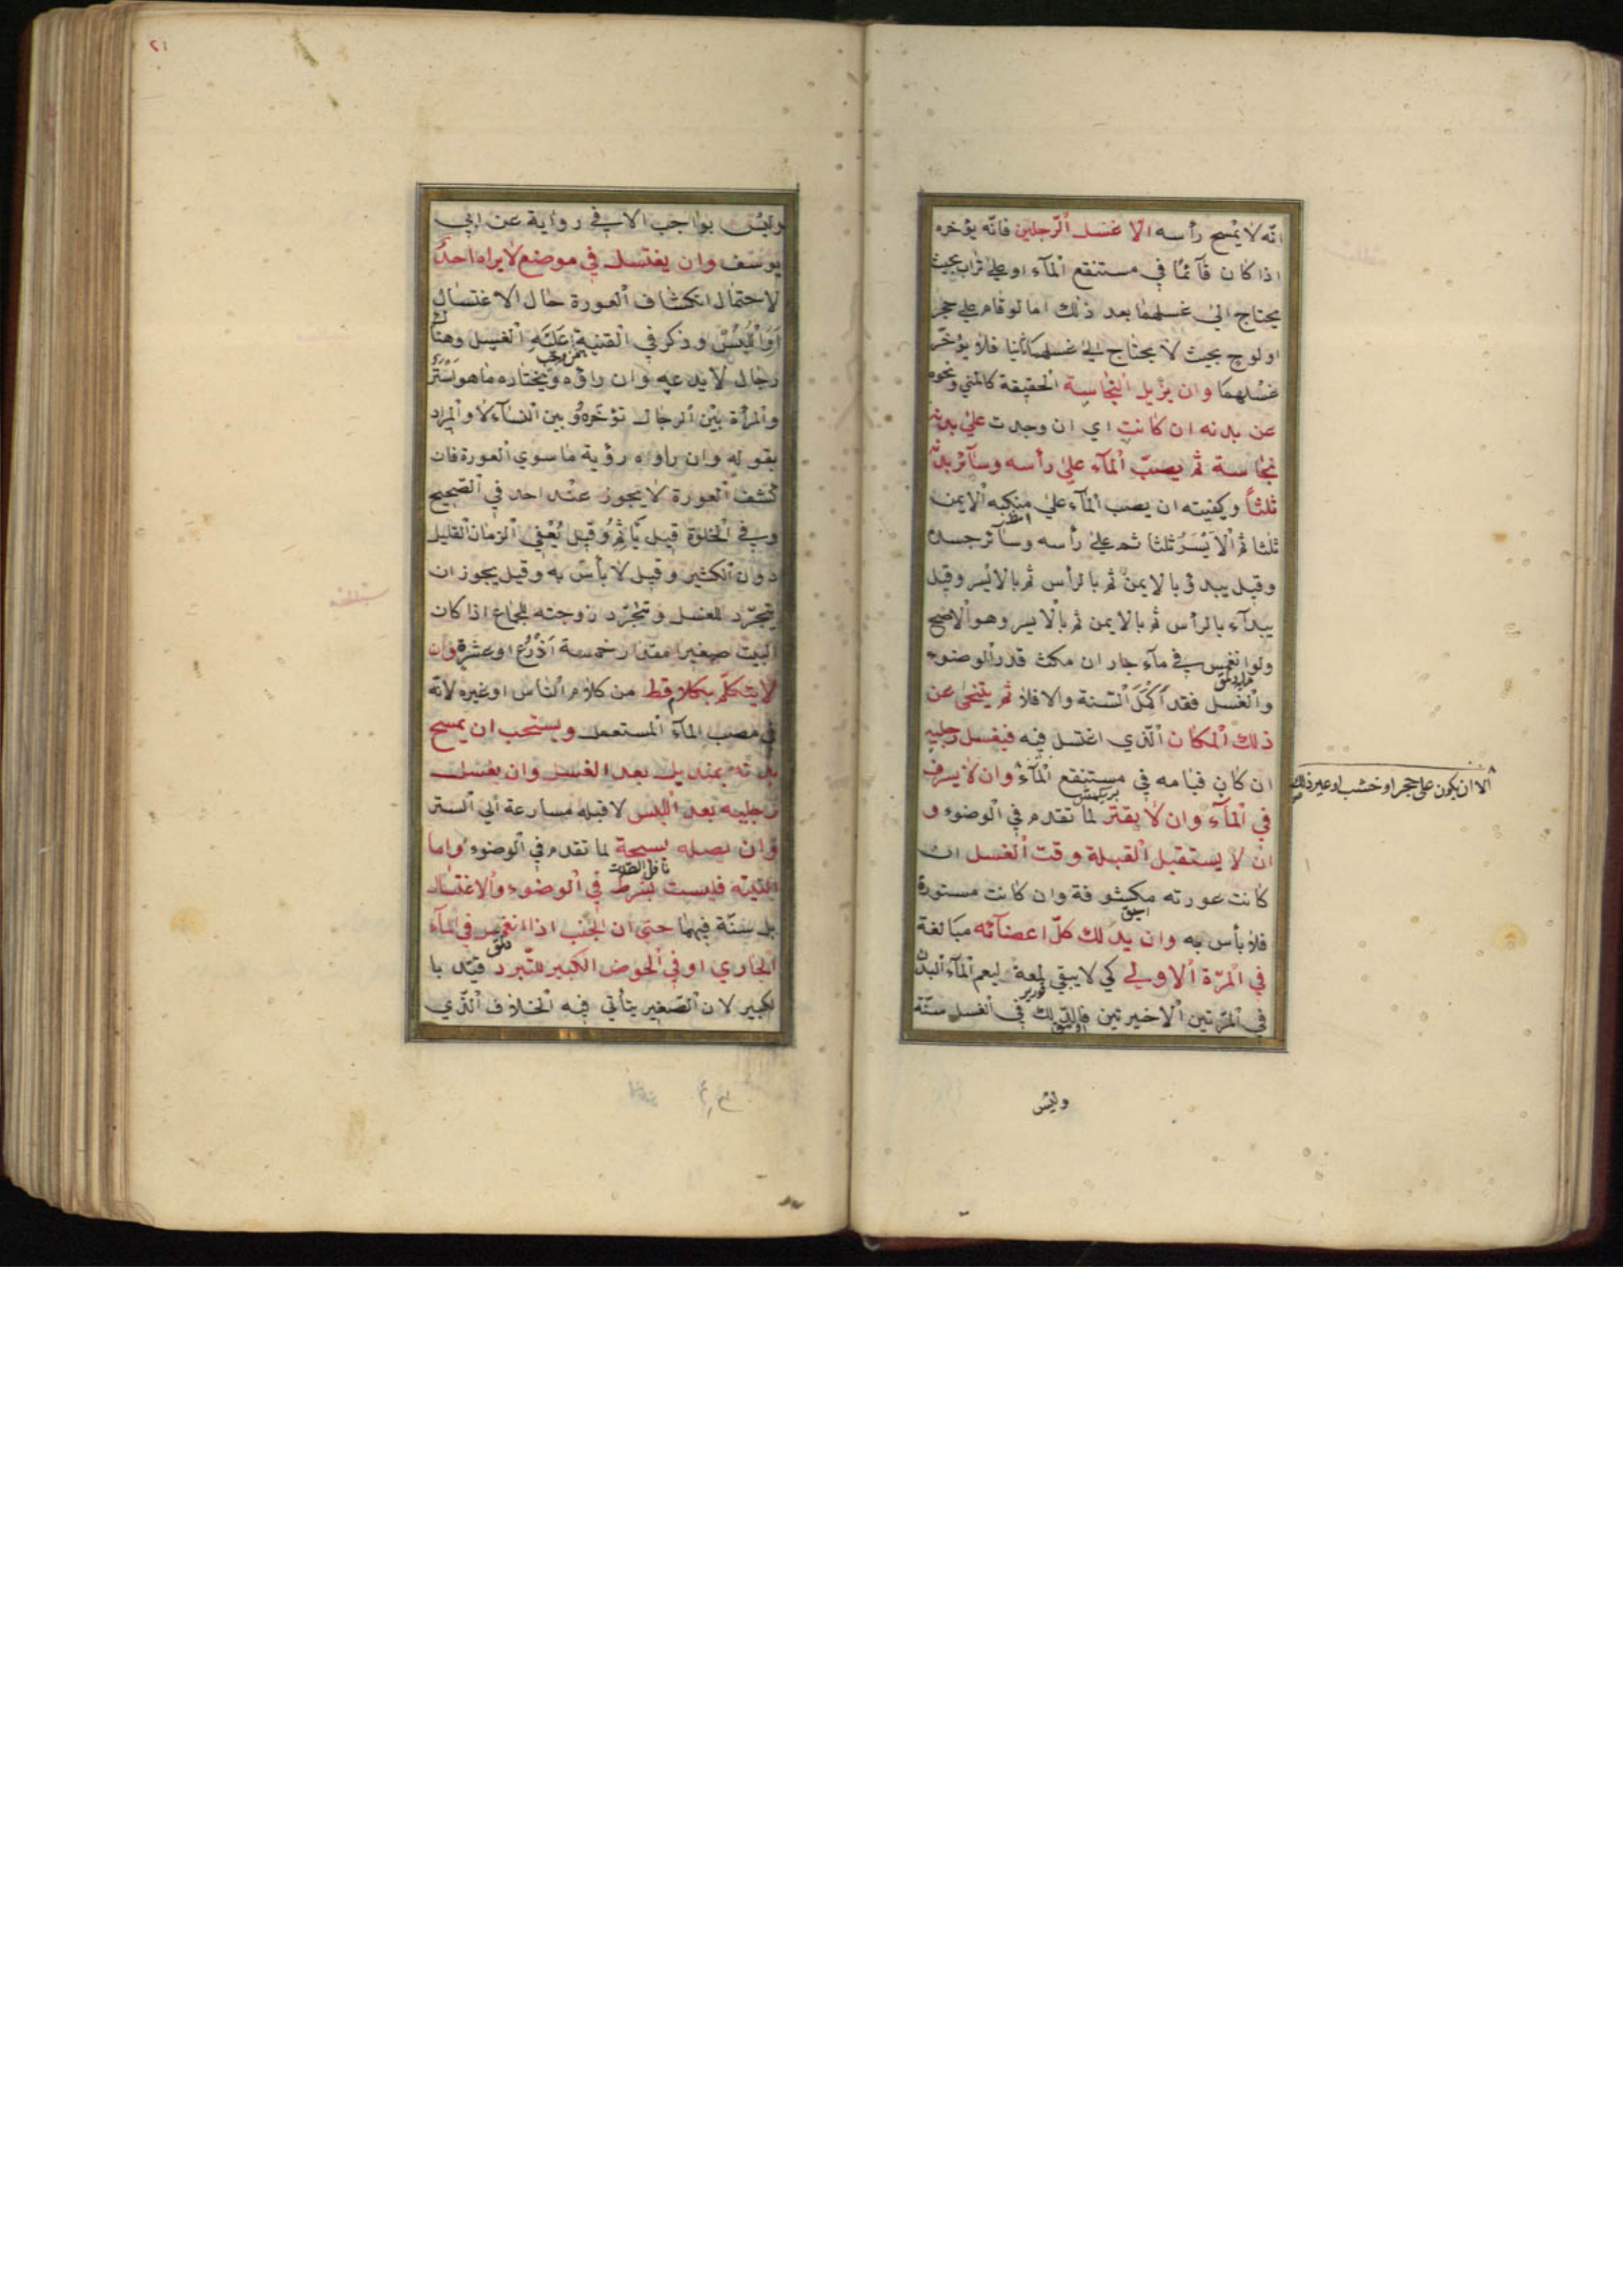 انّه لا يمسح رأسه الّا غسل الرّجلين فانّه يؤخره
اذا كان قآئمًا في مستنقع المآء او على تراب بحيث
يحتاج الى غسلهما بعد ذلك اما لو قام على حجر
او لوح بحيث لا يحتاج الى غسلهما ثانيا فلا يؤخّر
غسلهما وان يزيل النجاسة الحقيقة كالمني ونحوه
عن بدنه ان كانت اي ان وجدت على بدنه
نجاسة ثم يصبّ المآء على رأسه وسآئر بدنه
ثلثاً وكيفيته ان يصب المآء على منكبه الايمن
ثلثا ثم الايسر ثلثا ثم على رأسه وسآئر جسده
وقيل يبدئ بالايمن ثم بالرأس ثم بالايسر وقيل
يبدآء بالرأس ثم بالايمن ثم بالايسر وهو الاصح
ولو انغمس في مآء جار ان مكث قدر الوضوء
والغسل فقد اكمل السنة والا فلا ثم يتنحى عن
ذلك المكان الّذي اغتسل فيه فيغسل رجليه
ان كان قيامه في مستنقع المآء وان لا يسرف
الا ان يكون على حجر او خشب او غير ذلك
في المآء وان لا يقتر لما تقدم في الوضوء و
ان لا يستقبل القبلة وقت الغسل ان
كانت عورته مكشوفة وان كانت مستورة
فلا بأس به وان يدلك كلّ اعضآئه مبالغة
في المرّة الاولى كي لا يبقى لمعة ليعم المآء البدن
في المرّتين الاخيرتين فالدّلك في الغسل سنّة
وليس
٢١
وليس بواجب الا في رواية عن ابي
يوسف وان يغتسل في موضع لا يراه احد
لاحتمال انكشاف العورة حال الاغتسال
او اللبس وذكر في القنية عليه الغسل وهناك
رجال لا يدعه وان راؤه ويختاره ما هو استر
والمرأة بين الرجال تؤخره وبين النسآء لا والمراد
بقوله وان راوه رؤية ما سوي العورة فان
كشف العورة لا يجوز عند احد في الصحيح
وفي الخلوة قيل يأثم وقيل يعفى الزمان القليل
دون الكثير وقيل لا بأس به وقيل يجوز ان
يتجرّد للغسل وتجرّد زوجته للجماع اذا كان
البيت صغيرا مقدار خمسة اذرع او عشرة وان
لا يتكلّم بكلام قط من كلام الناس او غيره لانّه
في مصب المآء المستعمل ويستحب ان يمسح
بدنه بمنديل بعد الغسل وان يغسل
رجليه بعد اللبس لا قبله مسارعة الي الستر
وان يصله بسبحة لما تقدم في الوضوء واما
النيّة فليست بشرط في الوضوء والاغتسال
بل سنّة فيهما حتى ان الجنب اذا انغمس في المآء
الجاري او في الحوض الكبير للتّبرد قيّد با
لكبير لان الصّغير يتأتي فيه الخلاف الّذي